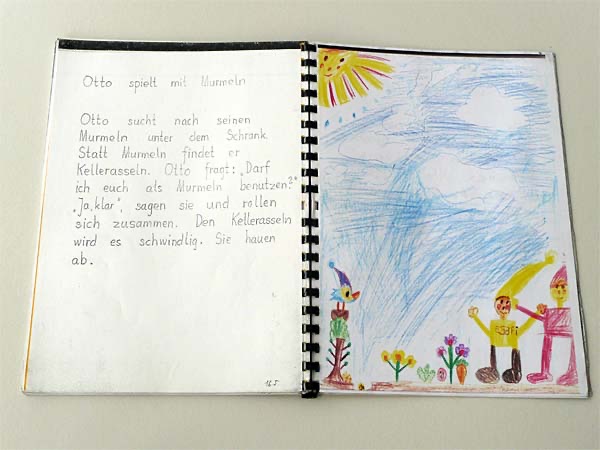 Otto spielt mit Murmeln
Otto sucht nach seinen
Murmeln unter dem Schrank.
Statt Murmeln findet er
Kellerasseln. Otto fragt: „Darf
ich euch als Murmeln benutzen?"
„Ja, klar", sagen sie und rollen
sich zusammen. Den Kellerasseln
wird es schwindlig. Sie hauen
ab.